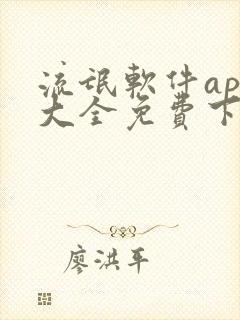 流氓軟件ap
大全免費下
廖洪平